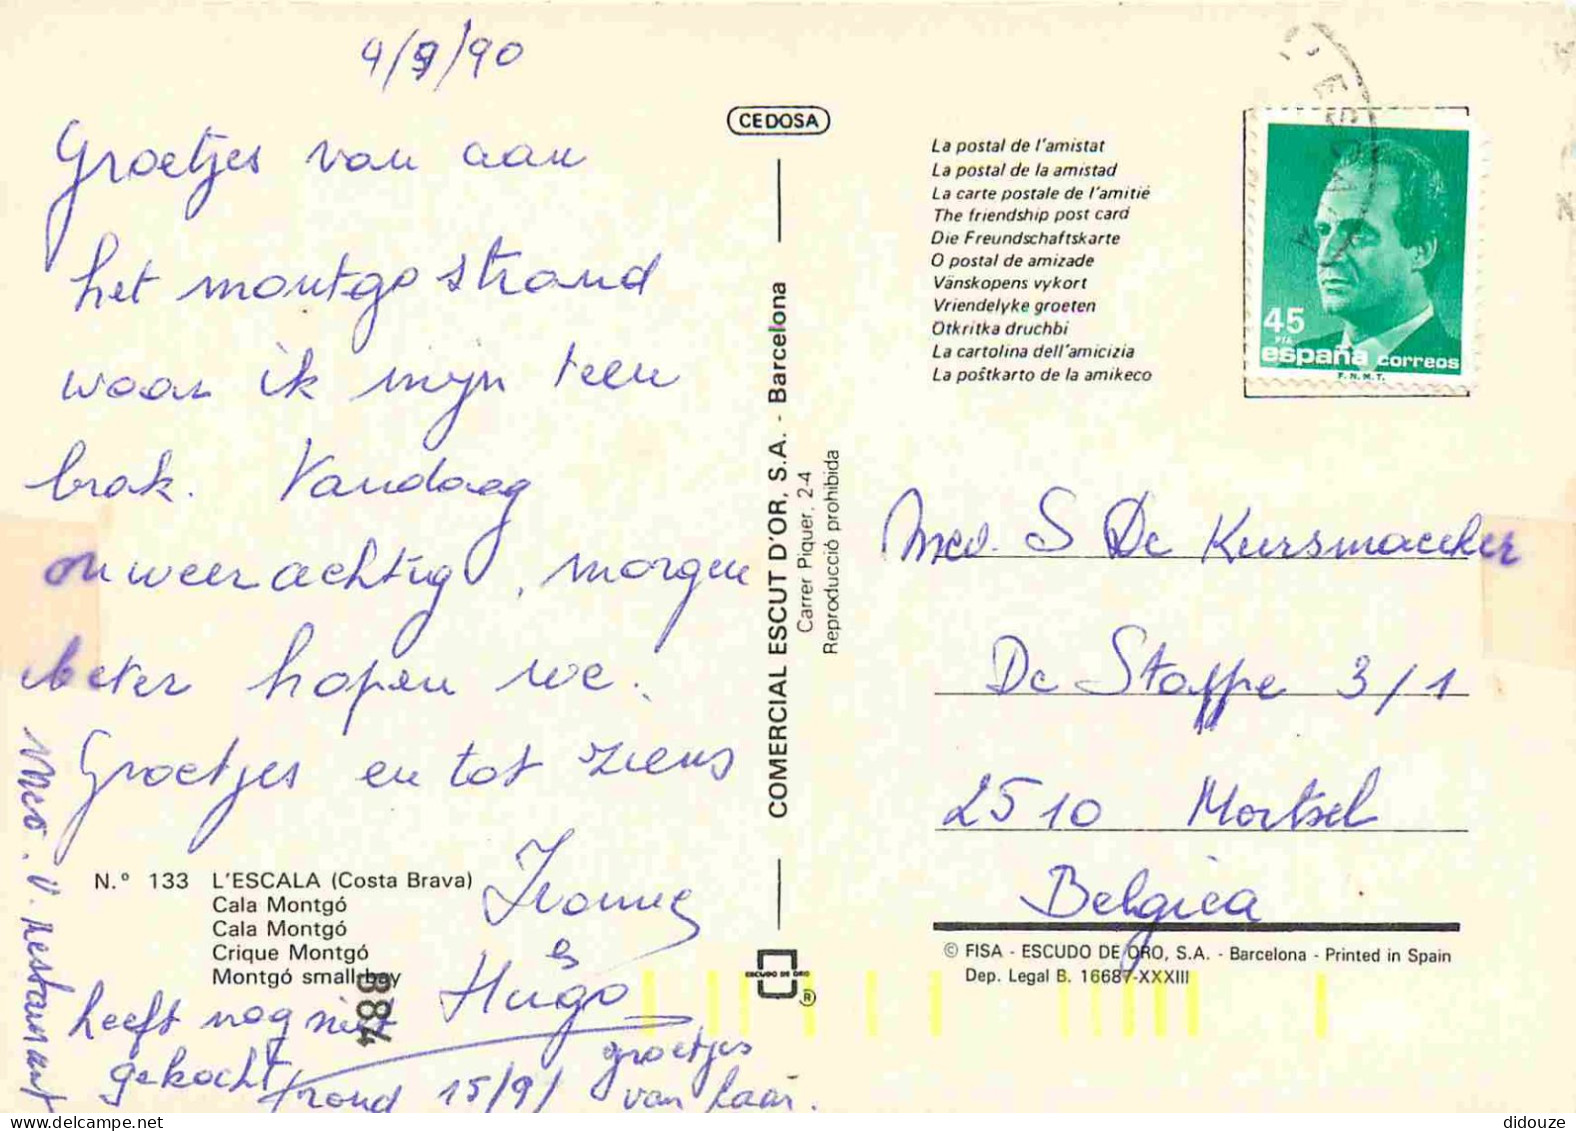 4/9/90
Groetjes van aan
het montgo strand
waar ik mijn teen
brak. Vandaag
onweerachtig, morgen
beter hopen we.
Groetjes en tot ziens
Ivonne
&
Hugo
Mev. V. restaurant
heeft nog niet
gekocht
rond 15/9/
groetjes
van haar.
N.º 133 L'ESCALA (Costa Brava)
Cala Montgó
Cala Montgó
Crique Montgó
Montgó small bay
884
CEDOSA
COMERCIAL ESCUT D'OR, S.A. - Barcelona
Carrer Piquer, 2-4
Reproducció prohibida
ESCUDO DE ORO
®
La postal de l'amistat
La postal de la amistad
La carte postale de l'amitié
The friendship post card
Die Freundschaftskarte
O postal de amizade
Vänskopens vykort
Vriendelyke groeten
Otkritka druchbi
La cartolina dell'amicizia
La poŝtkarto de la amikeco
45
PTA
españa correos
F.N.M.T.
Mev. S De Keersmaecker
De Stappe 3/1
2510 Mortsel
Belgica
© FISA - ESCUDO DE ORO, S.A. - Barcelona - Printed in Spain
Dep. Legal B. 16687-XXXIII
didouze